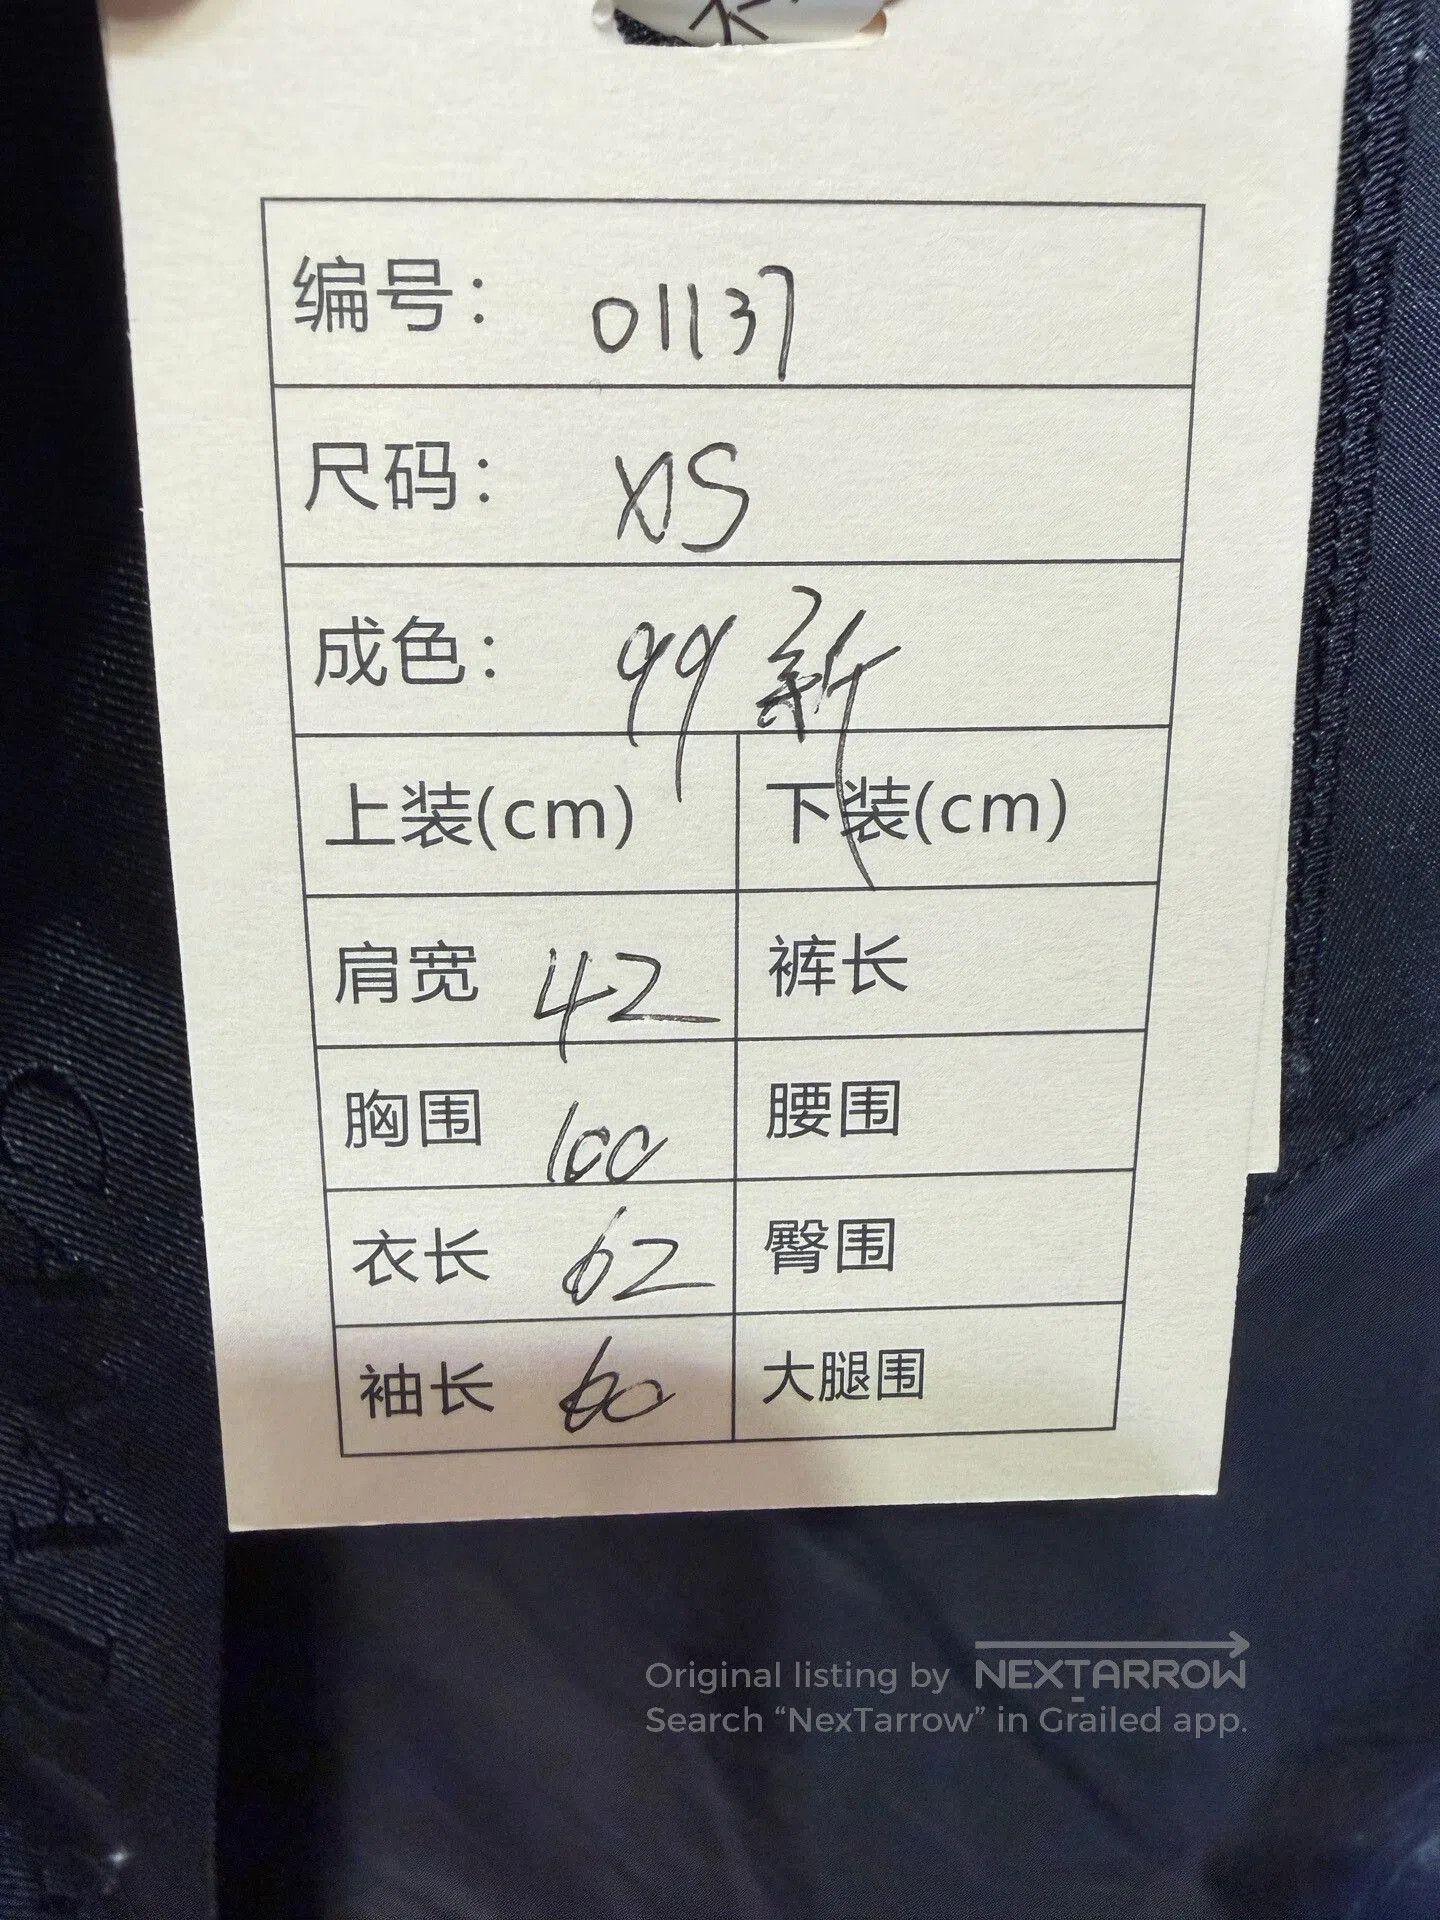 编号： 01137
尺码： XS
成色： 99新
上装(cm) 下装(cm)
肩宽 42 裤长
胸围 100 腰围
衣长 62 臀围
袖长 60 大腿围
Original listing by NEXTARROW
Search “NexTarrow” in Grailed app.